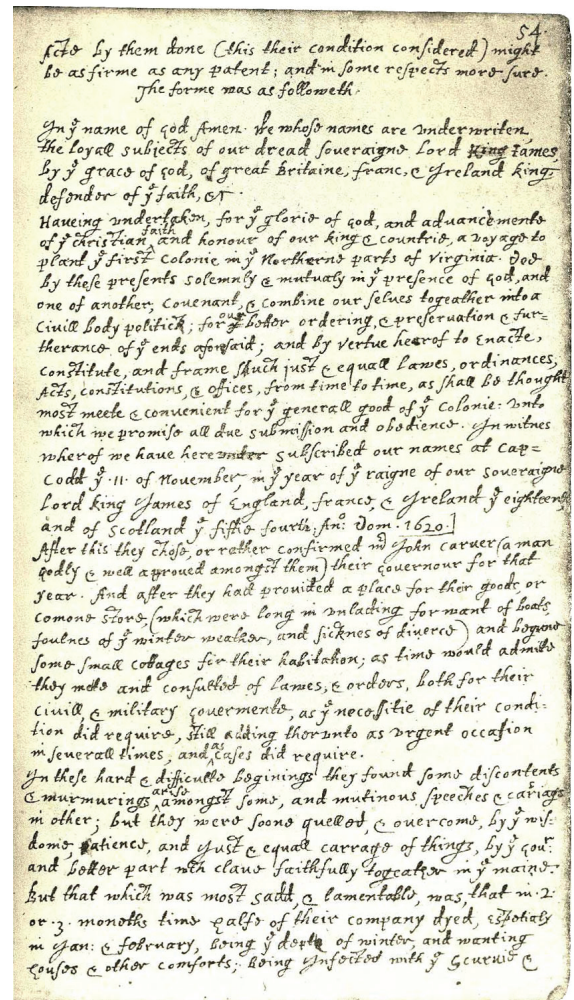 54.
Acts by them done (this their condition considered) might
be as firme as any patent; and in some respects more sure.
The forme was as followeth.
In yͤ name of god Amen. We whose names are underwriten,
the loyall subjects of our dread soveraigne Lord King James
by yͤ grace of god, of great Britaine, franc, & Ireland king,
defender of yͤ faith, &c.
Haveing undertaken, for yͤ glorie of god, and advancemente
of yͤ christian faith and honour of our king & countrie, a voyage to
plant yͤ first colonie in yͤ Northerne parts of Virginia. Doe
by these presents solemnly & mutualy in yͤ presence of god, and
one of another, covenant, & combine our selves togeather into a
Civill body politick; for our better ordering, & preservation & fur=
therance of yͤ ends aforesaid; and by vertue hearof to enacte,
constitute, and frame such just & equall lawes, ordinances,
Acts, constitutions, & offices, from time to time, as shall be thought
most meete & convenient for yͤ generall good of yͤ colonie: unto
which we promise all due submission and obedience. In witnes
wherof we have hereunder subscribed our names at Cap=
Codd yͤ .11. of November, in yͤ year of yͤ raigne of our soveraigne
Lord king James of England, france, & Ireland yͤ eighteenth
and of Scotland yͤ fiftie fourth. Anº: Dom. 1620.]
After this they chose, or rather confirmed mʳ John carver (a man
godly & well approved amongst them) their governour for that
year. And after they had provided a place for their goods, or
comone store, (which were long in unlading for want of boats,
foulnes of yͤ winter weather, and sicknes of diverce) and begune
some small cottages for their habitation; as time would admitte
they mette and consulted of lawes, & orders, both for their
civill & military govermente, as yͤ necessitie of their condi:
tion did require, still adding therunto as urgent occasion
in severall times, and as cases did require.
In these hard & difficulte beginings they found some discontents
& murmurings arise amongst some, and mutinous speeches & cariags
in other; but they were soone quelled, & overcome, by yͤ wis:
dome, patience, and just & equall carrage of things, by yͤ govʳ:
and better part wᶜʰ clave faithfully togeather in yͤ maine.
But that which was most sadd, & lamentable, was, that in .2.
or .3. moneths time halfe of their company dyed, espetialy
in Jan: & february, being yͤ depth of winter, and wanting
houses & other comforts; being Infected with yͤ Scurvie &